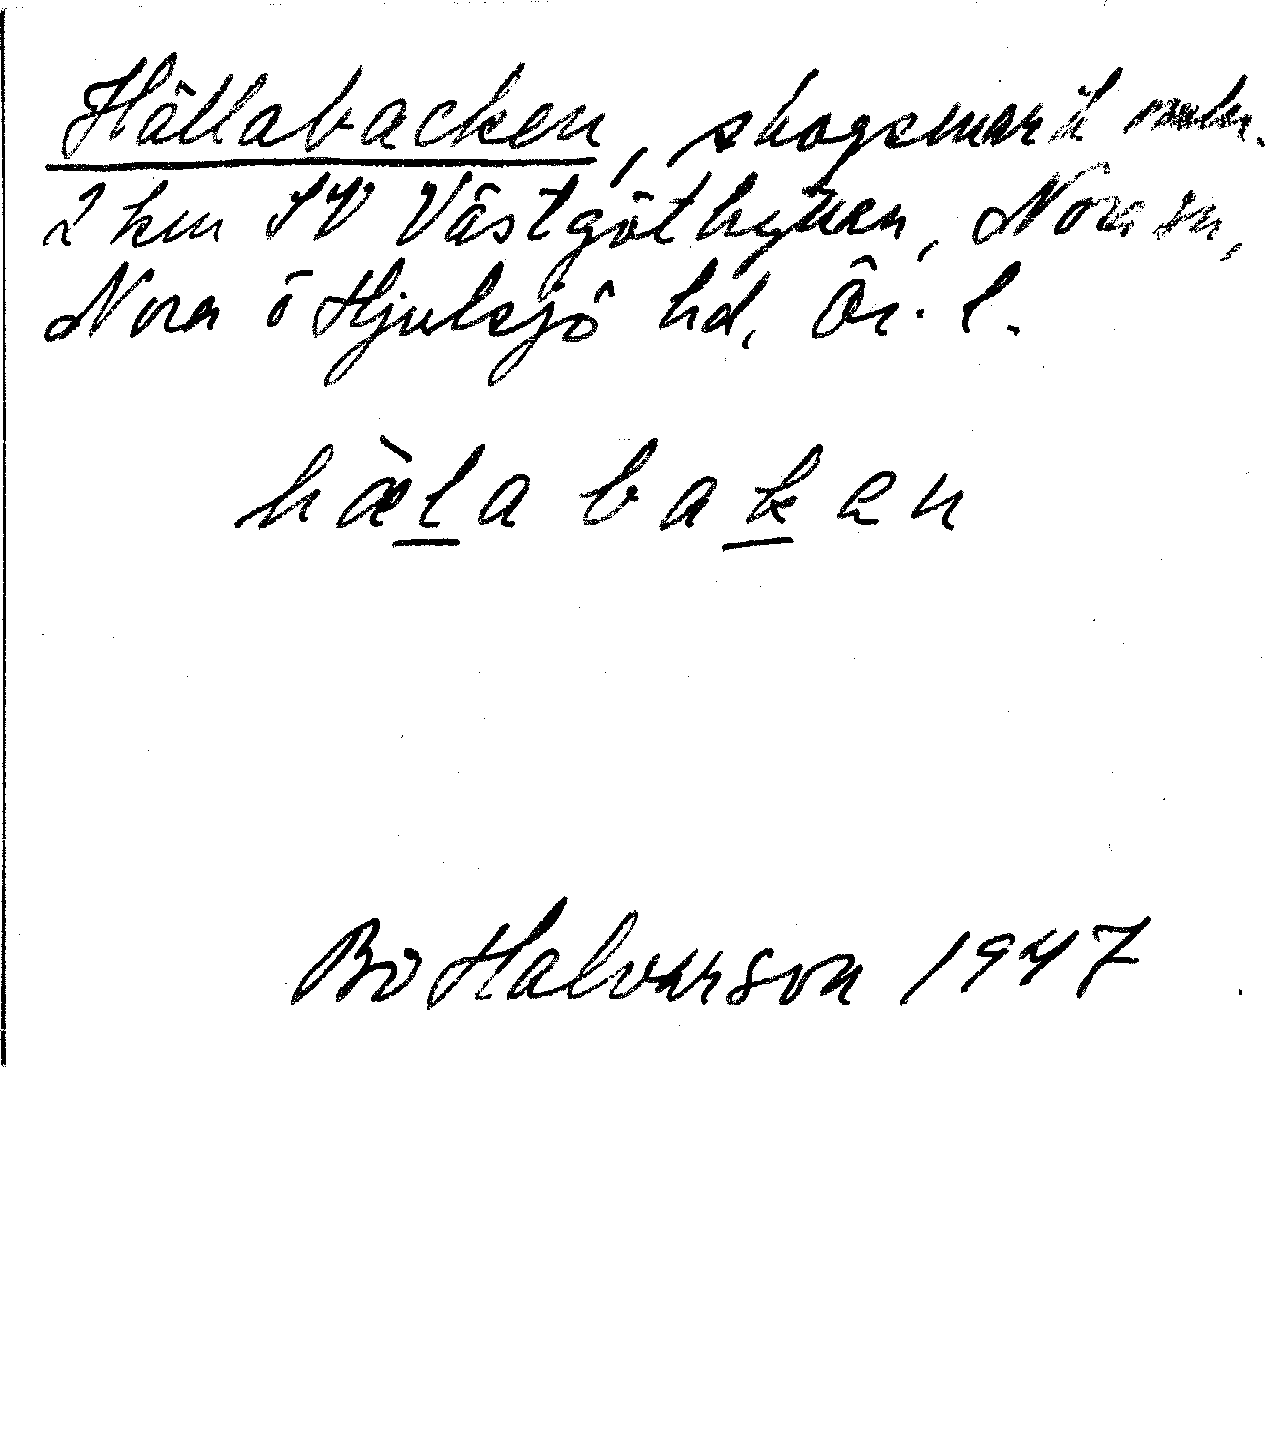 Hällabacken, skogsmark
2 km SV Västgöthyttan, Nora sn,
Nora o Hjulsjö hd, Ör. l.
hæ̀la bakan
Bo Halvarson 1947